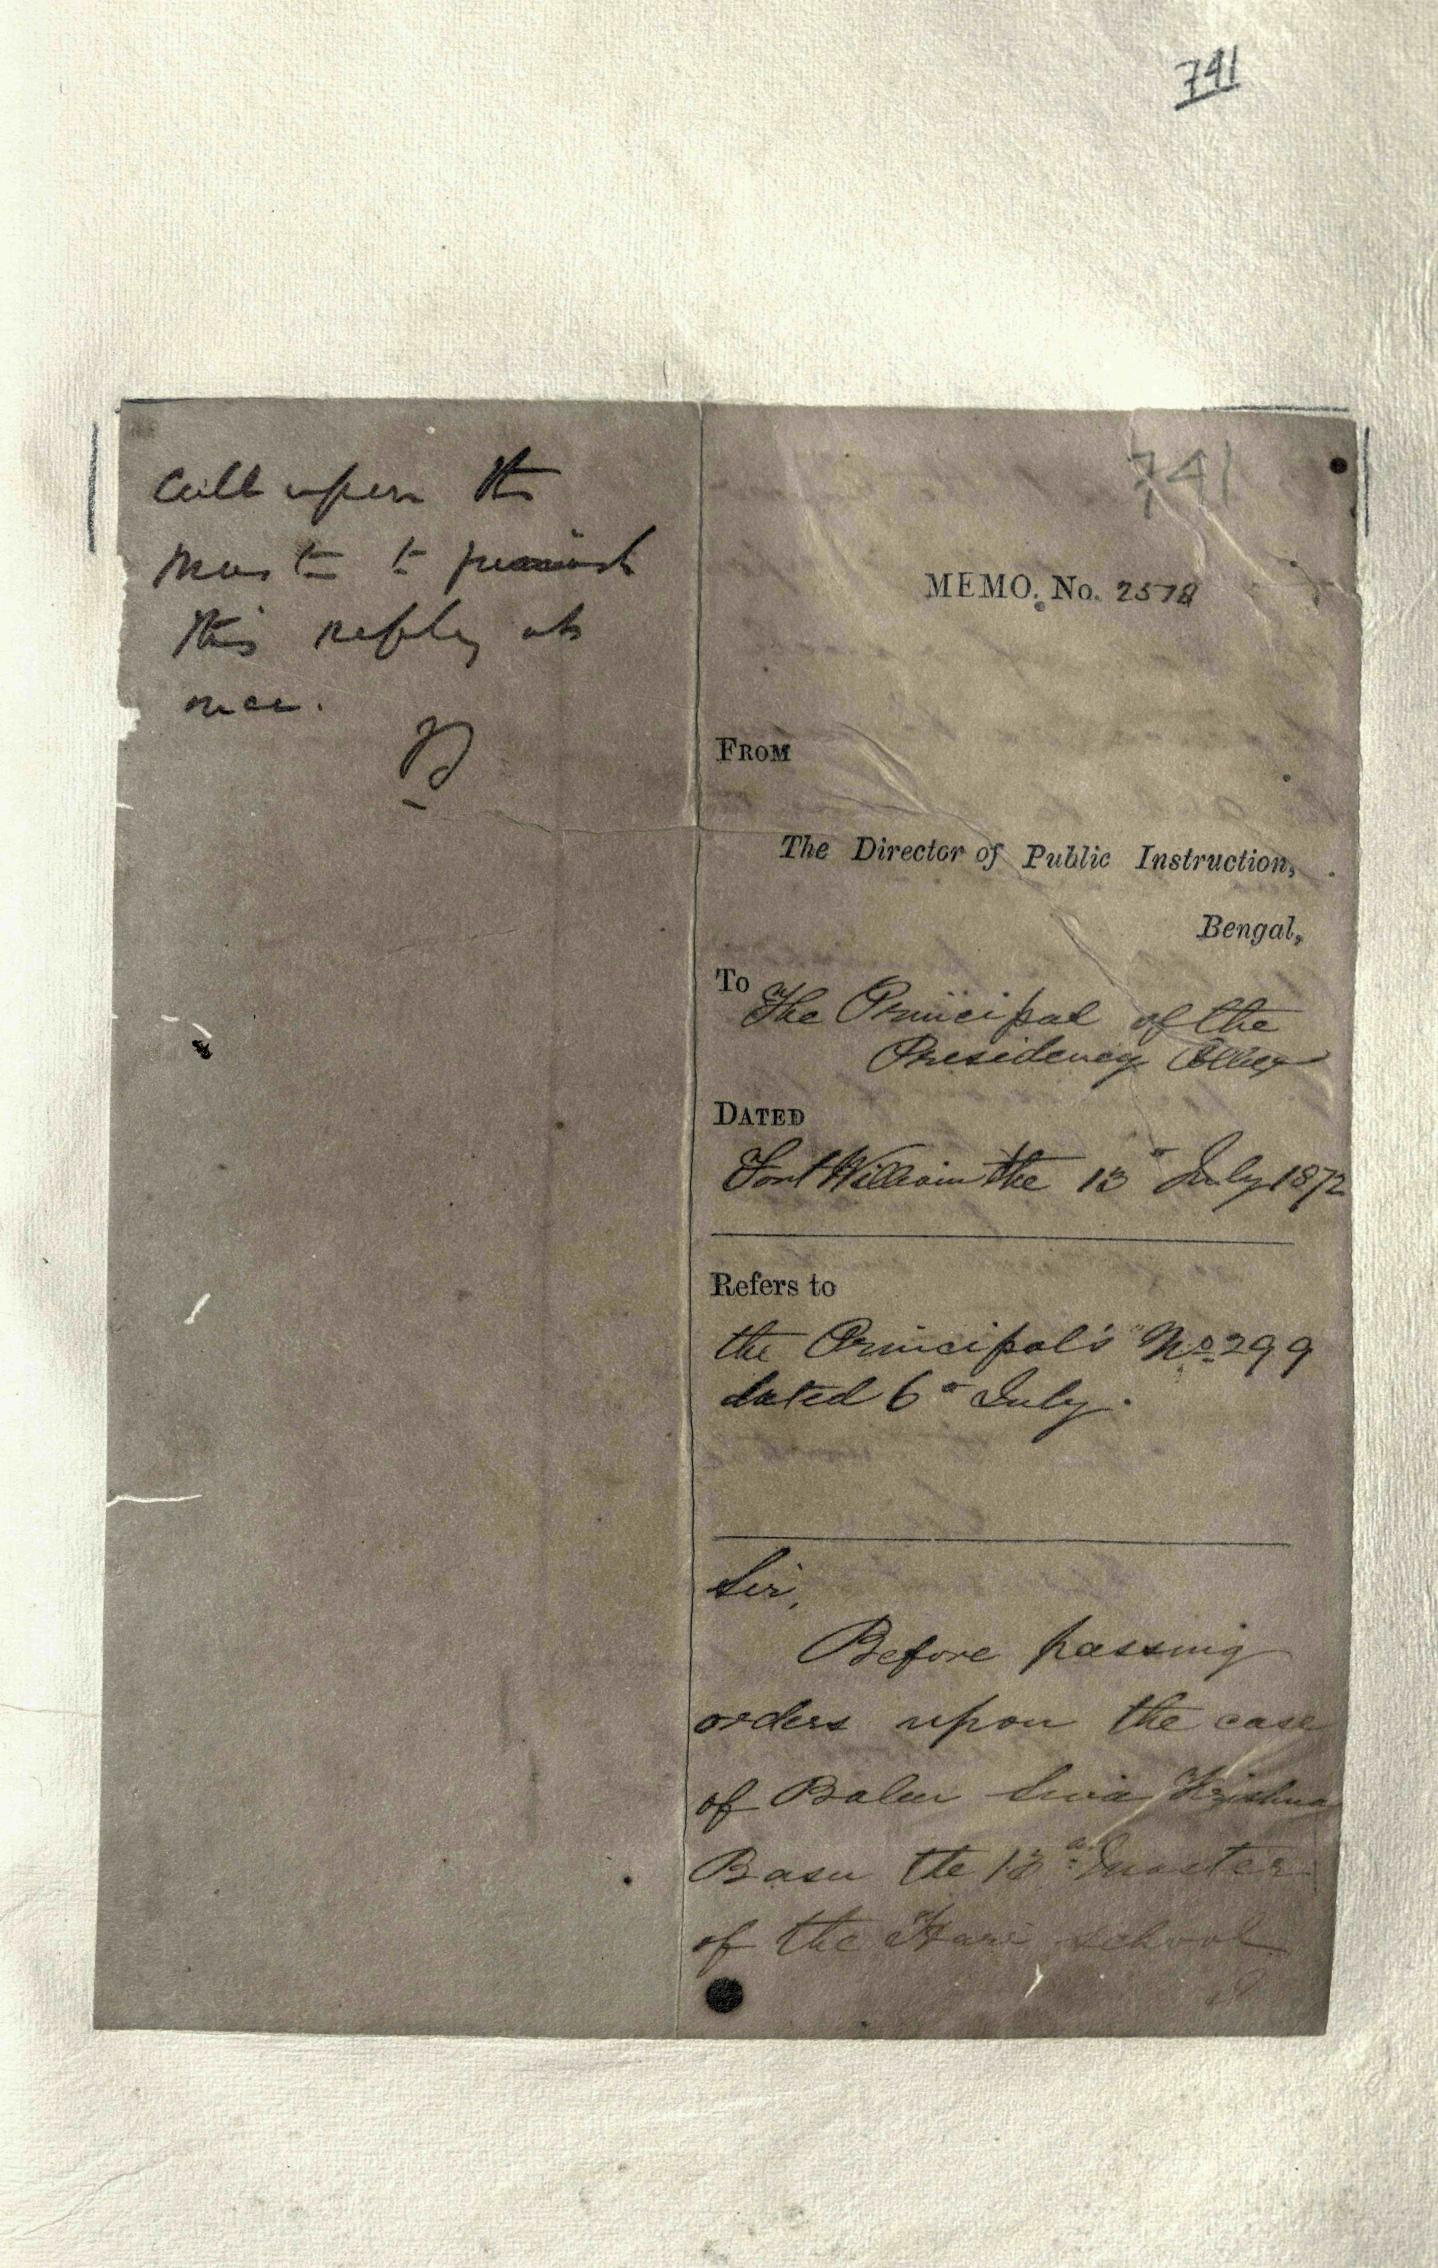 741
Call upon the
Master to furnish
this reply at
once.
741
MEMO. No. 2578
FROM
The Director of Public Instruction,
Bengal,
To
The Principal of the
Presidency College
DATED
Fort William the 13th July 1872
Refers to
the Principal's No 299
dated 6th July.
Sir,
Before passing
orders upon the case
of Babu Siva Krishna
Basu the 13th Master
of the Hare School